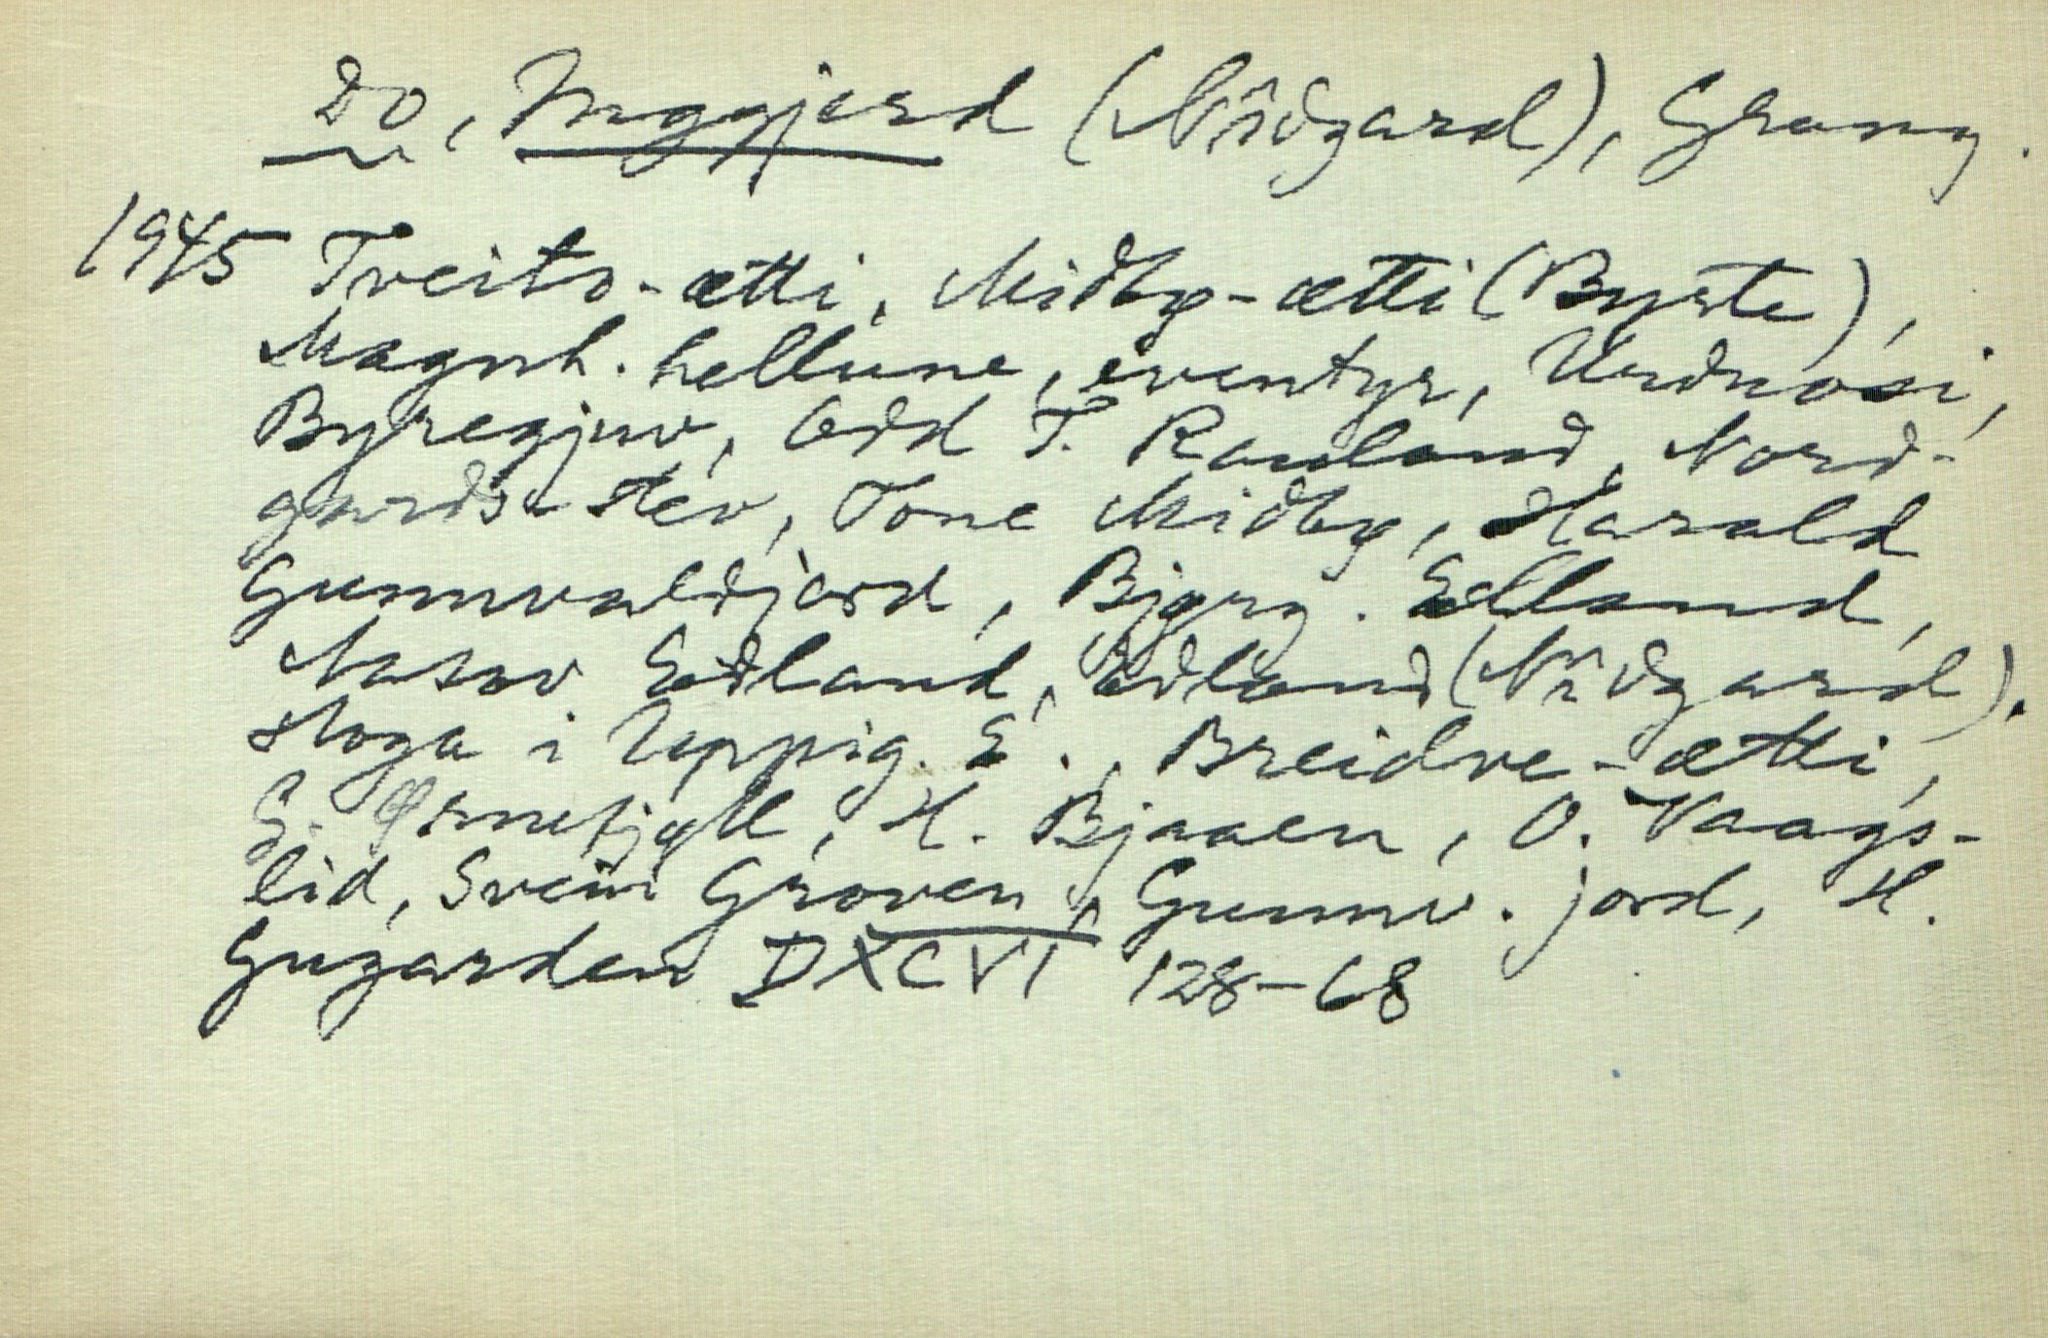 Do, Inggjerd (Nꝛ̂dgard), Grung.
1945 Tveito-ætti, Midby-ætti (Byrte),
Magnh. hellune, eventyr, Urdnosi,
Byregjuv, Odd T. Rauland, Nord-
gards-stev, Tone Midby, Harald
Gunnvaldjord, Bjørg. Edland,
Edland, Edland (Nꝛ̂dgard).
stoga i Uppig. E., Breidve-ætti,
G. Ørnefjell, H. Bjaaen, O. Vaags-
lid, Svein Groven, Gunnv. jord, H.
Gugarden DXCVI 128-68